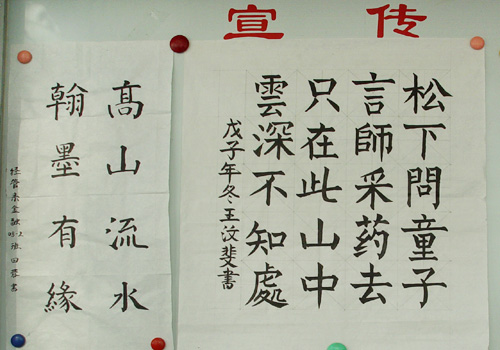 宣传
松下問童子
言師采药去
只在此山中
雲深不知處
戊子年冬王汶斐書
高山流水
翰墨有緣